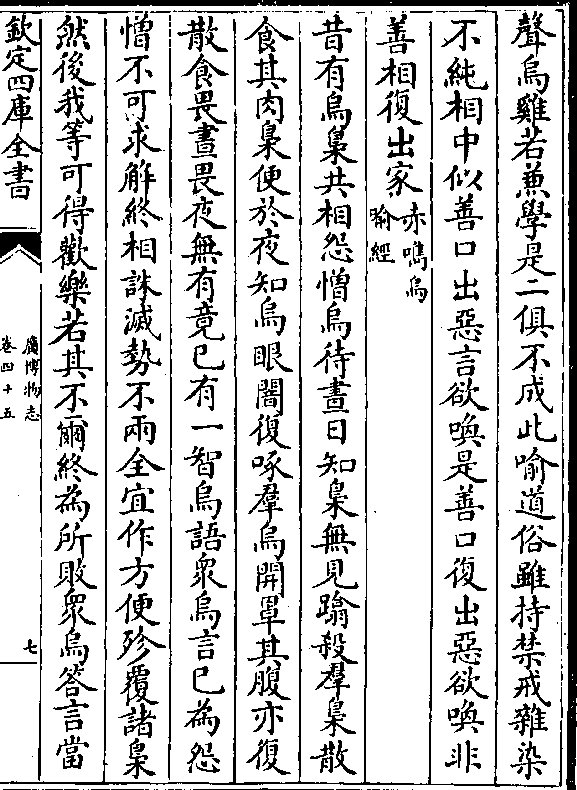 聲烏雞若兼學是二俱不成此喻道俗雖持禁戒雜染
不純相中似善口出惡言欲喚是善口復出惡欲喚非
善相復出家赤嘴烏喻經
昔有烏梟共相怨憎烏待晝日知梟無見蹹殺羣梟散
食其肉梟便於夜知烏眼闇復啄羣烏開罩其腹亦復
散食畏晝畏夜無有竟已有一智烏語衆烏言已為怨
憎不可求解終相誅滅勢不兩全宜作方便殄覆諸梟
然後我等可得歡樂若其不爾終為所敗衆烏答言當
欽定四庫全書
廣博物志
卷四十五
七